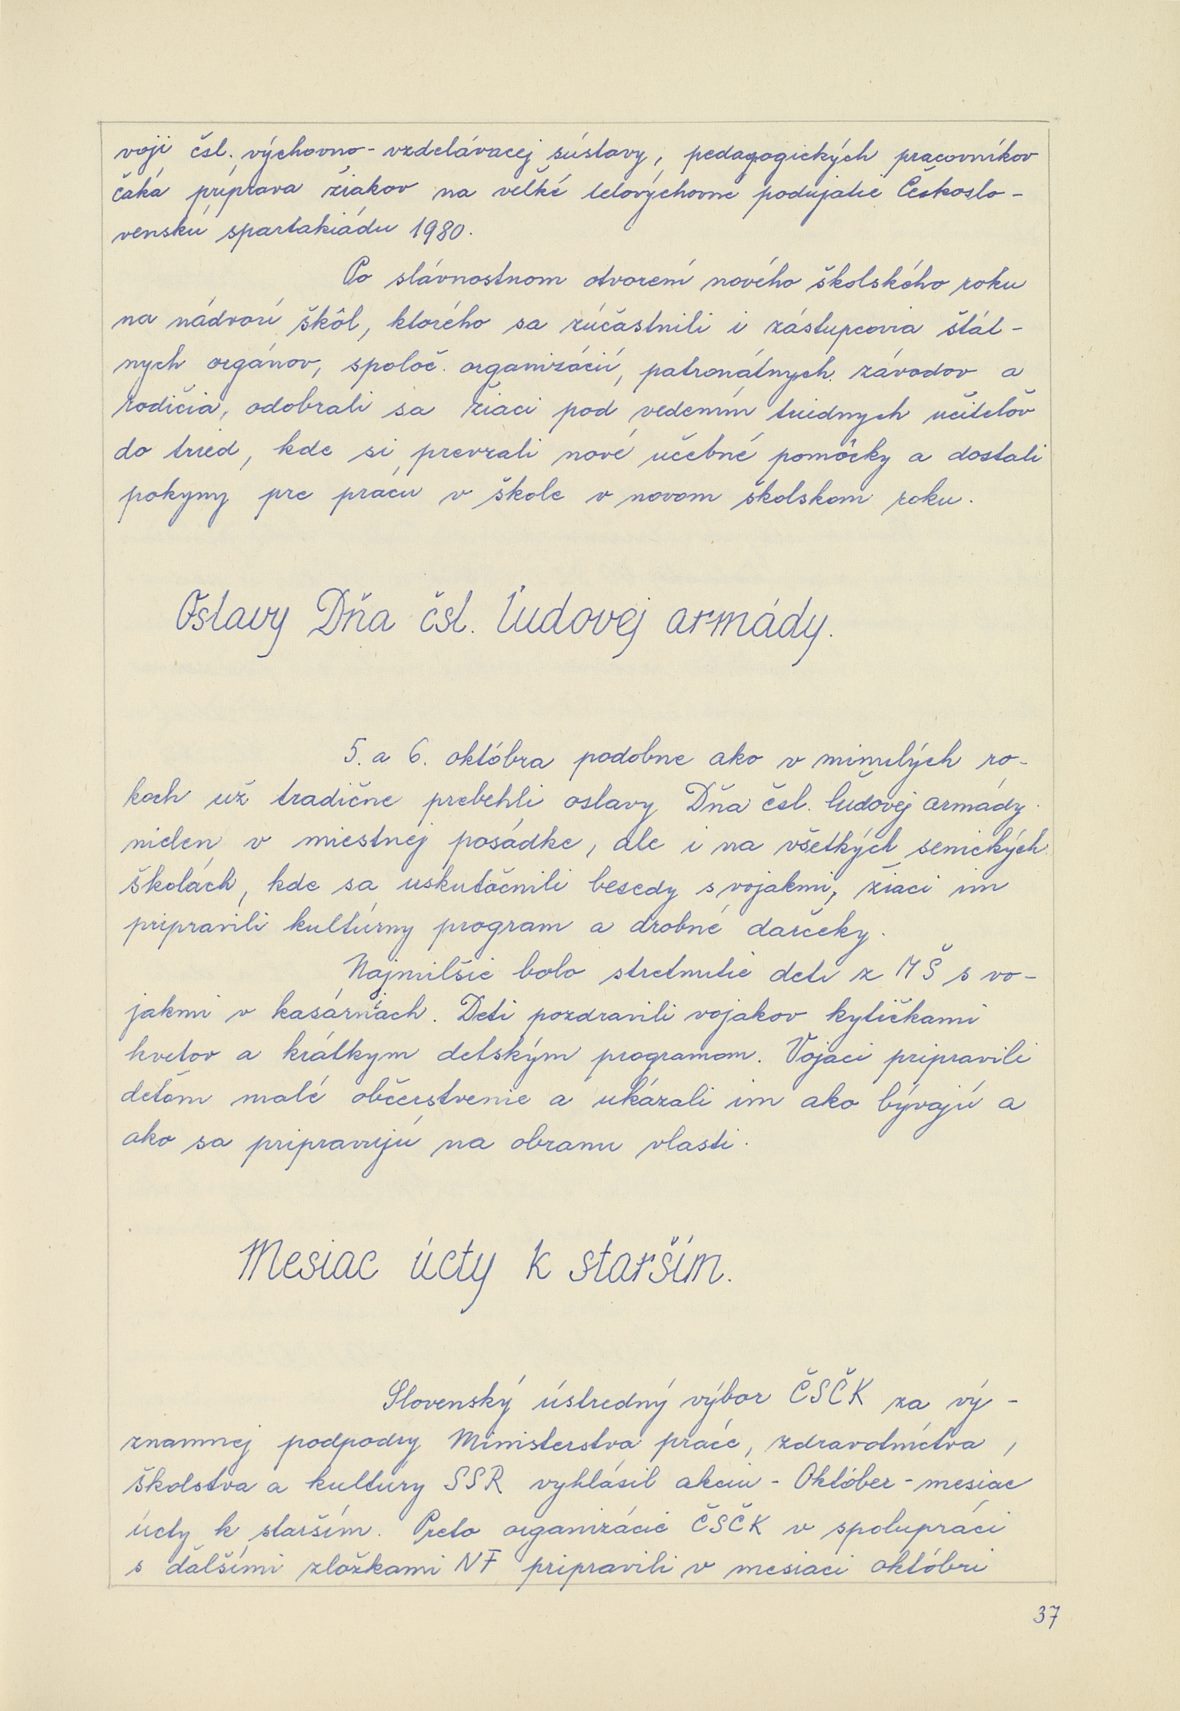 voji čsl. výchovno-vzdelávacej sústavy, pedagogických pracovníkov
čaká príprava žiakov na veľké telovýchovné podujatie Českoslo-
venskú spartakiádu 1980.
Po slávnostnom otvorení nového školského roku
na nádvorí škôl, ktorého sa zúčastnili i zástupcovia štát-
nych orgánov, spoloč. organizácií, patronátnych závodov a
rodičia, odobrali sa žiaci pod vedením triednych učiteľov
do tried, kde si prevzali nové učebné pomôcky a dostali
pokyny pre prácu v škole v novom školskom roku.
Oslavy Dňa čsl. ľudovej armády.
5. a 6. októbra podobne ako v minulých ro-
koch už tradične prebehli oslavy Dňa čsl. ľudovej armády
nielen v miestnej posádke, ale i na všetkých senických
školách, kde sa uskutočnili besedy s vojakmi, žiaci im
pripravili kultúrny program a drobné darčeky.
Najmilšie bolo stretnutie detí z MŠ s vo-
jakmi v kasárňach. Deti pozdravili vojakov kytičkami
kvetov a krátkym detským programom. Vojaci pripravili
deťom malé občerstvenie a ukázali im ako bývajú a
ako sa pripravujú na obranu vlasti.
Mesiac úcty k starším.
Slovenský ústredný výbor ČSČK za vý-
znamnej podpory Ministerstva práce, zdravotníctva,
školstva a kultúry SSR vyhlásil akciu - Október - mesiac
úcty k starším. Preto organizácie ČSČK v spolupráci
s ďalšími zložkami NF pripravili v mesiaci októbri
37